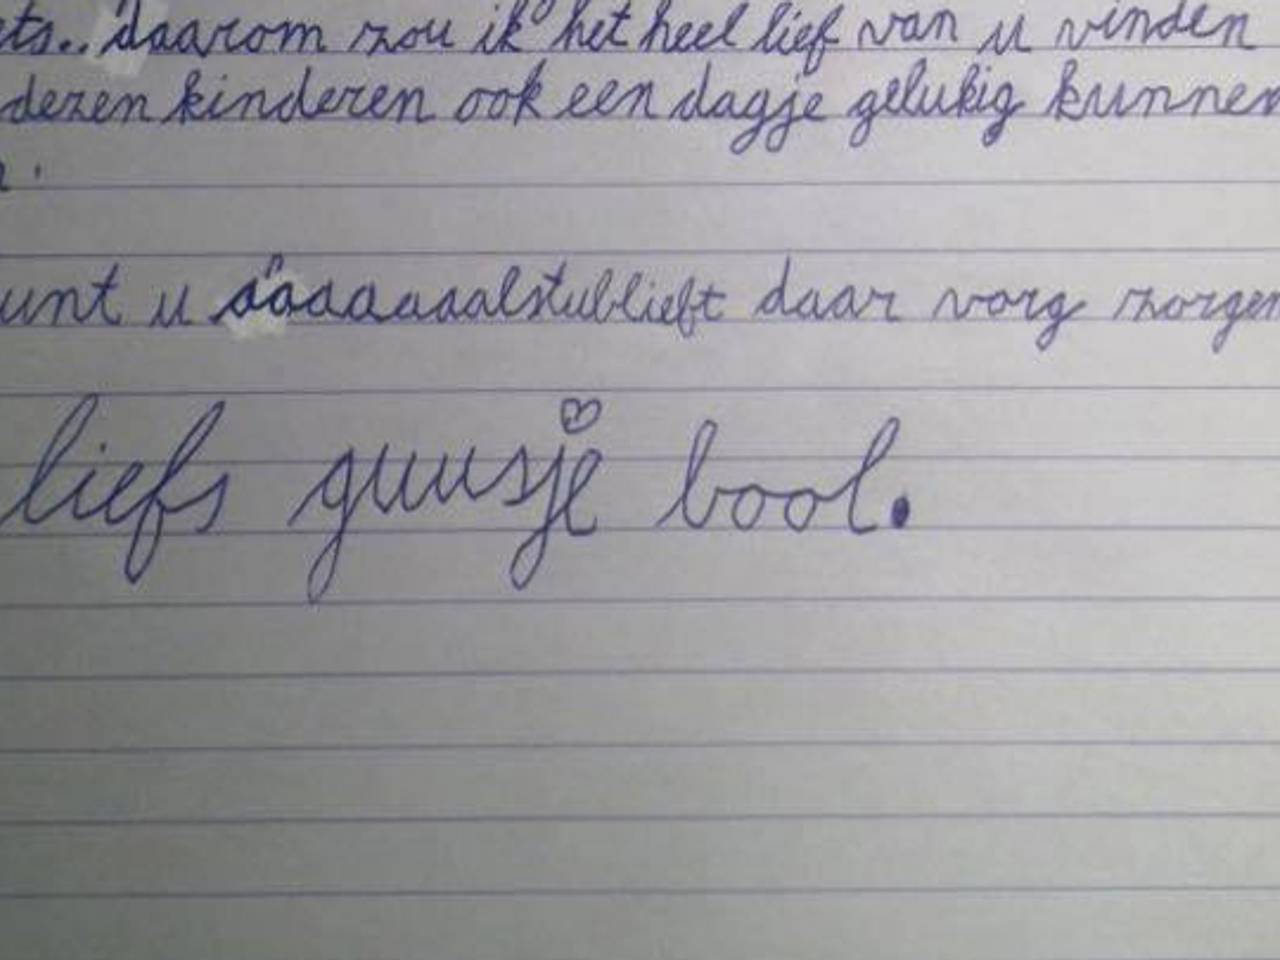 ts.. daarom zou ik het heel lief van u vinden
dezen kinderen ook een dagje gelukig kunnen
unt u aaaaaaaalstublieft daar vorg zorgen
liefs guusje bool.